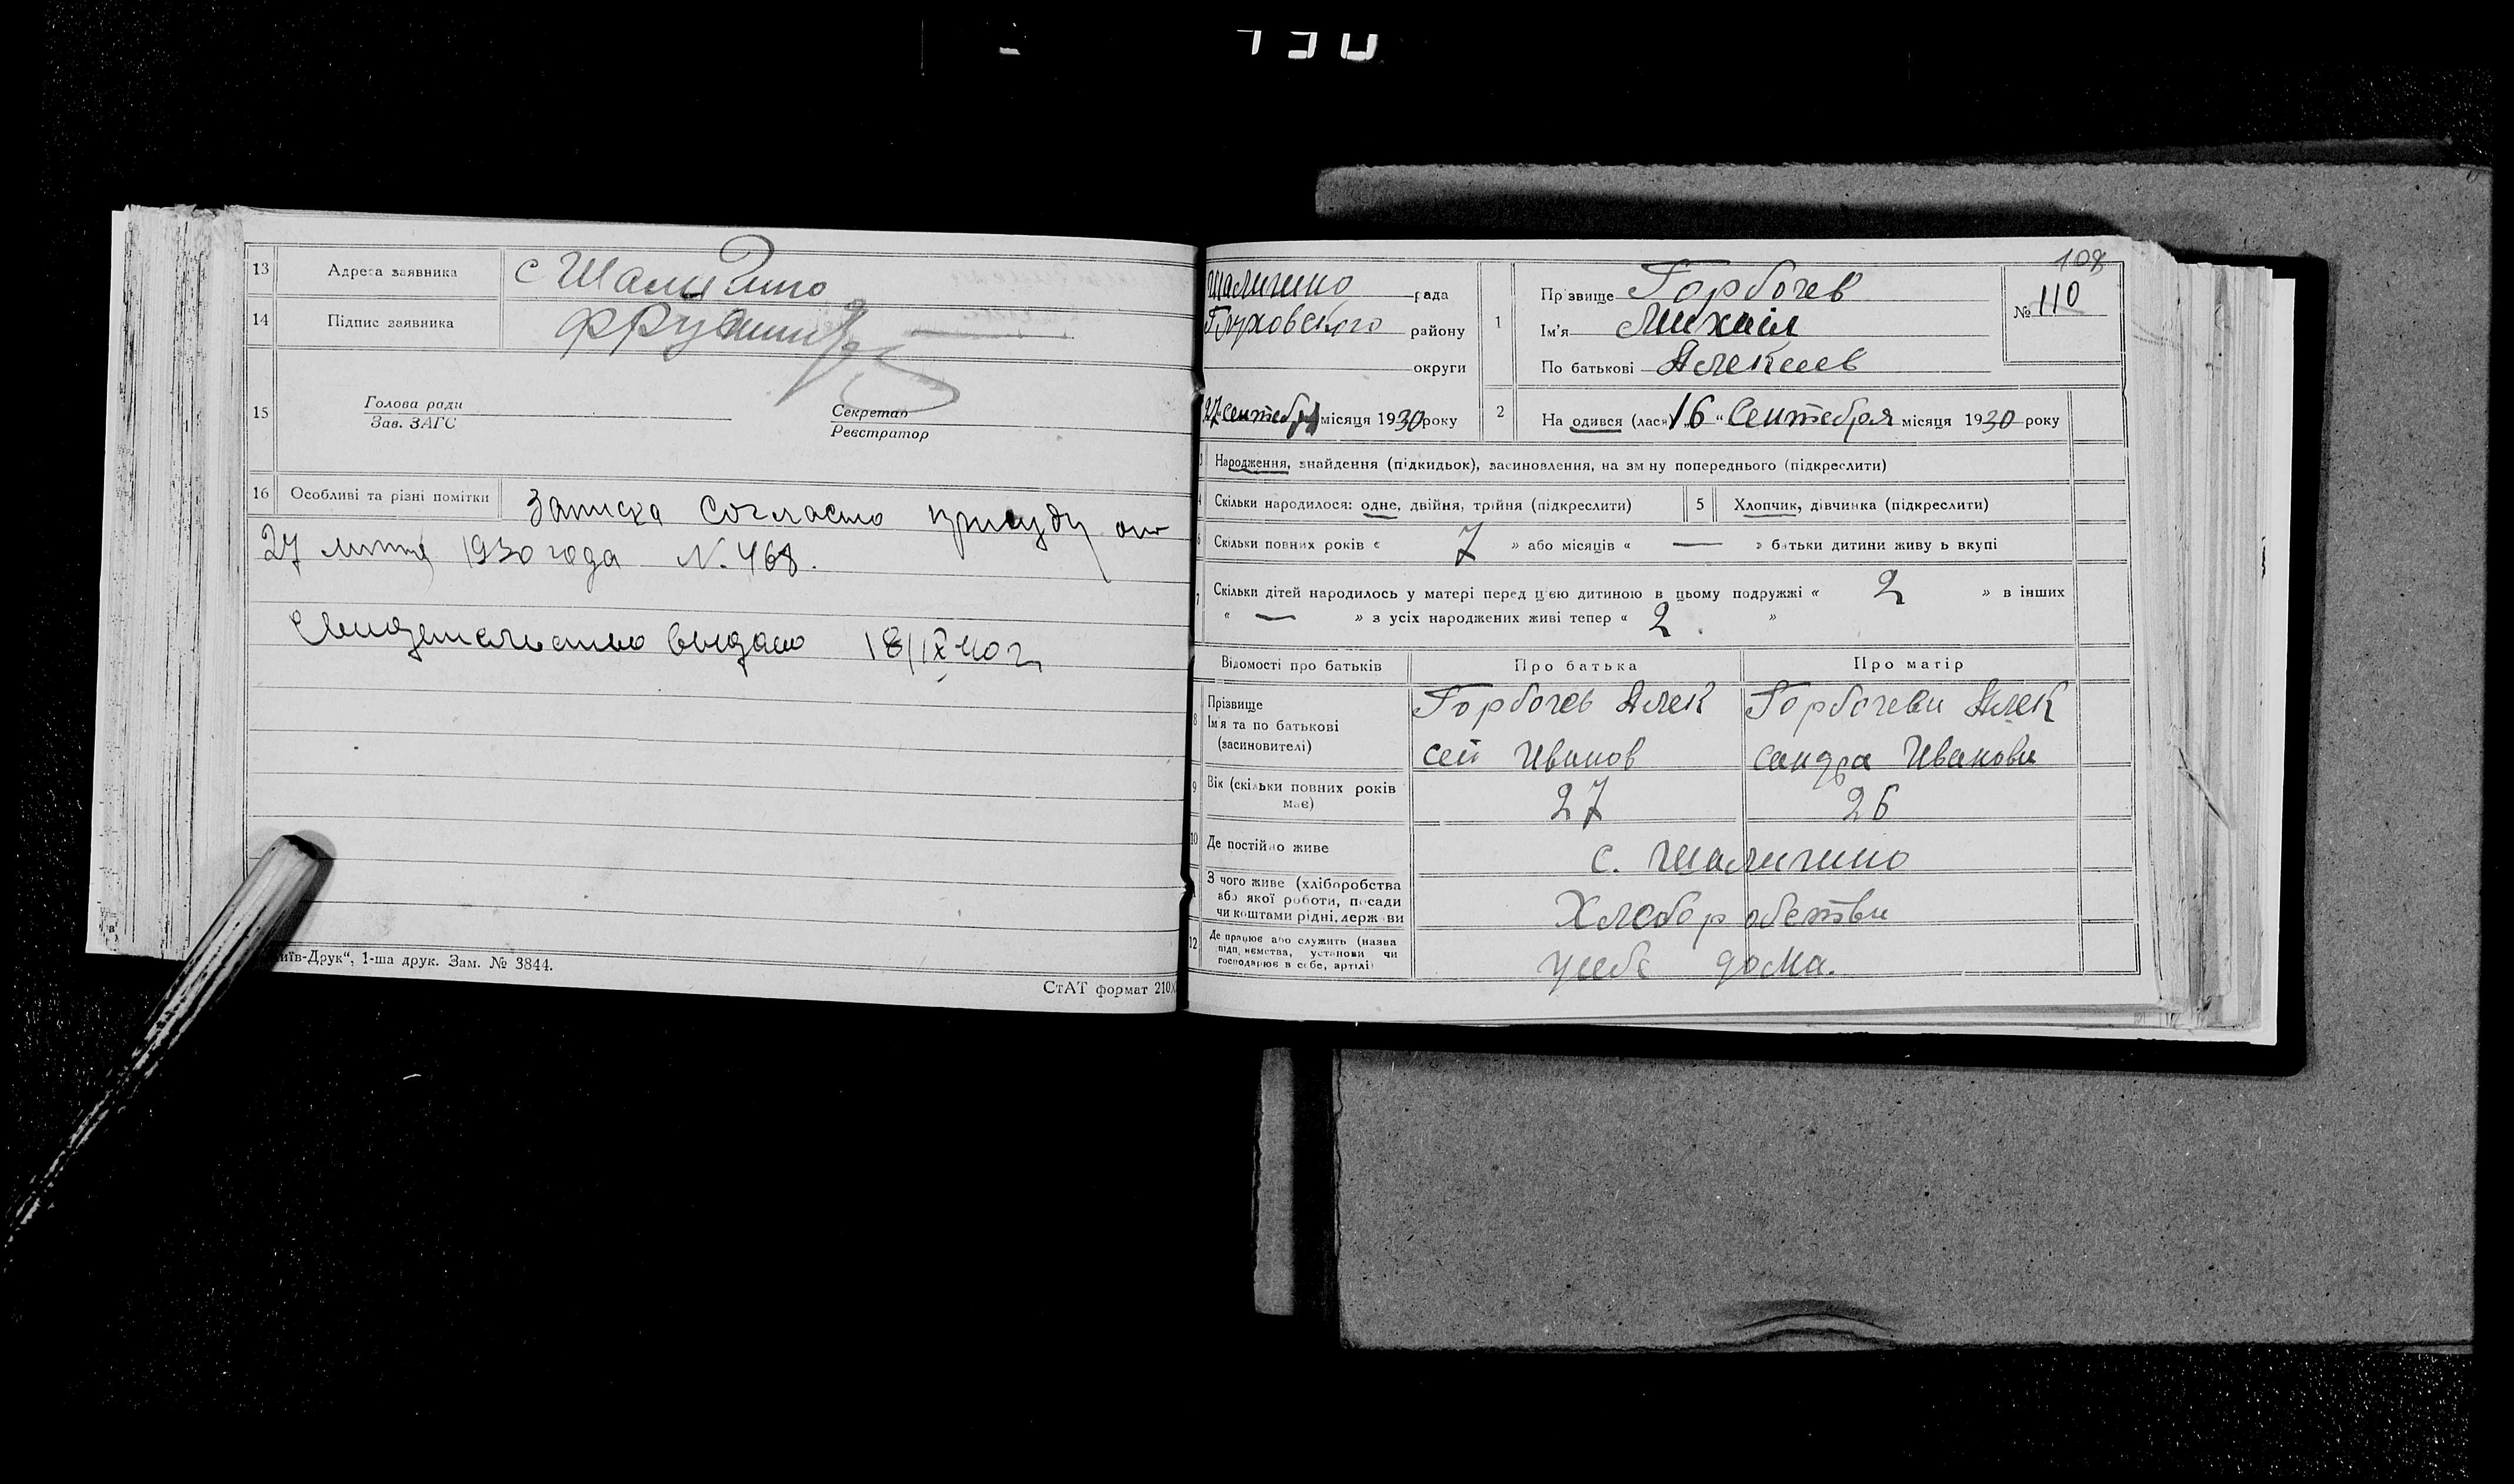 13 Адреса заявника с Шалигино
14 Підпис заявника
15 Голова ради
Зав. ЗАГС
Секретар
Реєстратор
16 Особливі та різні помітки Записка согласно присуду от
27 липня 1930 года N. 468.
Свидетельство выдано 18/IX 40 г.
иїв-Друк“, 1-ша друк. Зам. № 3844.
СтАТ формат 210х
108
Шалигино рада
Глуховского району
округи
27 сентебря місяця 1930 року
1 Прізвище Горбочев
Ім'я Михаил
По батькові Алексеев
№ 110
2 На одився (лася) „16“ Сентебря місяця 1930 року
3 Народження, знайдення (підкидьок), засиновлення, на зм ну попереднього (підкреслити)
4 Скільки народилося: одне, двійня, трійня (підкреслити) 5 Хлопчик, дівчинка (підкреслити)
6 Скільки повних років « 7 » або місяців « — » батьки дитини живу ь вкупі
7 Скільки дітей народилось у матері перед цією дитиною в цьому подружжі « 2 » в інших
« — » з усіх народжених живі тепер « 2. »
Відомості про батьків Про батька Про матір
8 Прізвище
Ім'я та по батькові
(засиновителі)
Горбочев Алек
сей Иванов
Горбочева Алек
сандра Иванова
9 Вік (скільки повних років
має) 27 26
10 Де постійно живе с. Шалигино
З чого живе (хліборобства
або якої роботи, посади
чи коштами рідні, держ ви
Хлеборобства
12 Де працює або служить (назва
підп, иємства, установи чи
господарює в себе, артілі)
у себе дома.